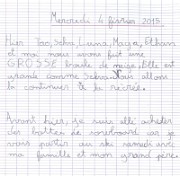 Mercredi 4 février 2015
Hier Luana, Maya,
et moi nous avons fait une
GROSSE boule de neige. Elle est
grande comme nous allons
la continuer à la récrée.
Avant hier, je suis allé acheter
des bottes de car je
vais partir au ski samedi avec
ma famille et mon grand père.